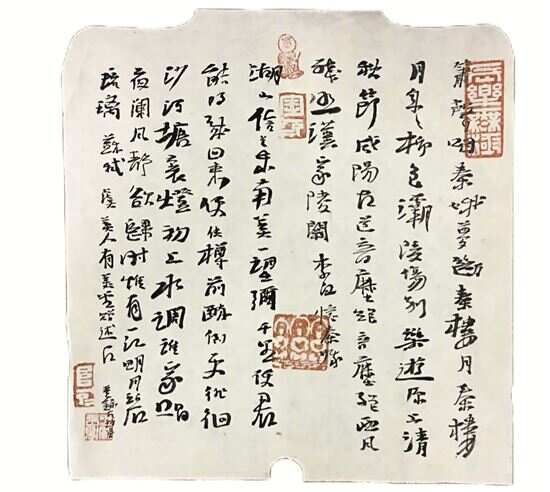 簫聲咽秦娥夢斷秦樓月秦樓
月年々柳色灞陵傷別樂遊原上清
秋節咸陽古道音塵絕音塵絕西風
殘照漢家陵闕 李白憶秦娥
湖山信是東南美一望彌千里使君
能得幾回來便使樽前醉倒更徘徊
沙河塘裏燈初上水調誰家唱
夜闌風靜欲歸時惟有一江明月碧
琉璃 蘇軾 虞美人有美堂贈述古
長樂無極